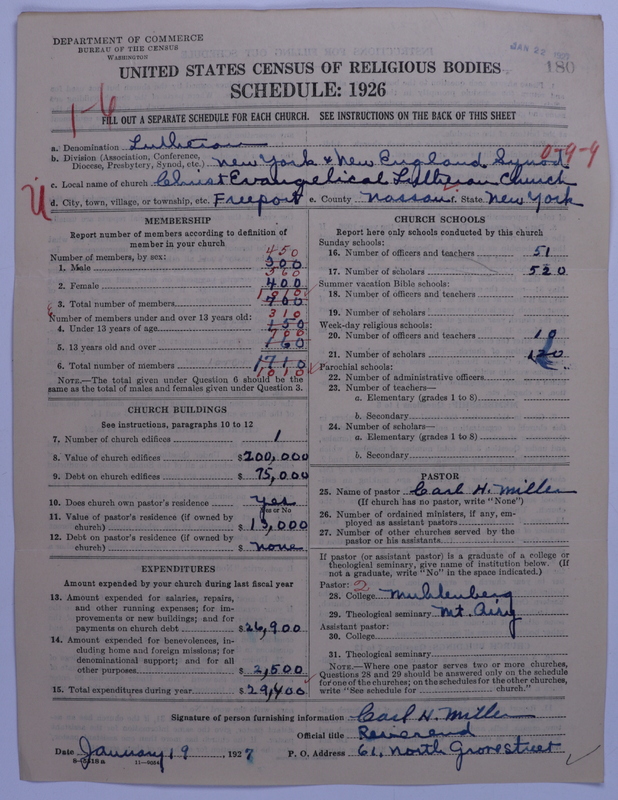 DEPARTMENT OF COMMERCE
BUREAU OF THE CENSUS
WASHINGTON
JAN 22 1927
180
UNITED STATES CENSUS OF RELIGIOUS BODIES
SCHEDULE: 1926
1-6
FILL OUT A SEPARATE SCHEDULE FOR EACH CHURCH. SEE INSTRUCTIONS ON THE BACK OF THIS SHEET
a. Denomination Lutheran
b. Division (Association, Conference, Diocese, Presbytery, Synod, etc.) New York & New England Synod 0-9-9
c. Local name of church Christ Evangelical Lutheran Church
U
d. City, town, village, or township, etc. Freeport e. County Nassau f. State New York
MEMBERSHIP
Report number of members according to definition of
member in your church
Number of members, by sex:
450
1. Male 300
560
2. Female 400
1010
3. Total number of members 700
Number of members under and over 13 years old:
310
4. Under 13 years of age 150
700
5. 13 years old and over
6. Total number of members 1710
1010
NOTE.—The total given under Question 6 should be the
same as the total of males and females given under Question 3.
CHURCH BUILDINGS
See instructions, paragraphs 10 to 12
7. Number of church edifices 1
8. Value of church edifices $200,000
9. Debt on church edifices $75,000
10. Does church own pastor's residence Yes
Yes or No
11. Value of pastor's residence (if owned by
church) $15,000
12. Debt on pastor's residence (if owned by
church) $ none
EXPENDITURES
Amount expended by your church during last fiscal year
13. Amount expended for salaries, repairs,
and other running expenses; for im-
provements or new buildings; and for
payments on church debt $26,900
14. Amount expended for benevolences, in-
cluding home and foreign missions; for
denominational support; and for all
other purposes $2,500
15. Total expenditures during year $29,400
CHURCH SCHOOLS
Report here only schools conducted by this church
Sunday schools:
16. Number of officers and teachers 51
17. Number of scholars 520
Summer vacation Bible schools:
18. Number of officers and teachers
19. Number of scholars
Week-day religious schools:
20. Number of officers and teachers 10
21. Number of scholars 120
Parochial schools:
22. Number of administrative officers
23. Number of teachers—
a. Elementary (grades 1 to 8)
b. Secondary
24. Number of scholars—
a. Elementary (grades 1 to 8)
b. Secondary
PASTOR
25. Name of pastor Carl H. Miller
(If church has no pastor, write "None")
26. Number of ordained ministers, if any, em-
ployed as assistant pastors
27. Number of other churches served by the
pastor or his assistants
If pastor (or assistant pastor) is a graduate of a college or
theological seminary, give name of institution below. (If
not a graduate, write "No" in the space indicated.)
Pastor: 2
28. College Muhlenberg
29. Theological seminary Mt. Airy
Assistant pastor:
30. College
31. Theological seminary
NOTE.—Where one pastor serves two or more churches,
Questions 28 and 29 should be answered only on the schedule
for one of the churches; on the schedules for the other churches,
write "See schedule for church."
Signature of person furnishing information Carl H. Miller
Official title Reverend
Date January 19, 1927 P. O. Address 61, North Grove street
11—8084